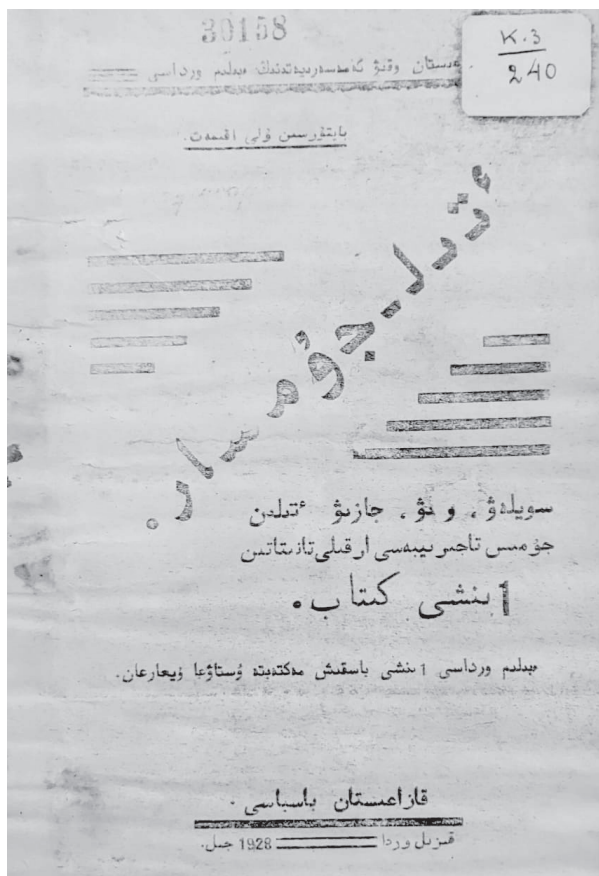 30158
К.3
240
ەستان وقىۋ كەمەسەرىيەتىنىڭ ءبىلىم ورداسى
بايتۇرسىن ۇلى اقىمەت.
ءتىل - جۇمسار.
سويلەۋ، وقۋ، جازىۋ ءتىلىن
جۇمىس تاجىرىيبەسى ارقىلى تانىتاتىن
1 ىنشى كىتاب.
ءبىلىم ورداسى 1 ىنشى باسقىش مەكتەبتە ۇستاۋعا ۇيعارعان.
قازاعىستان باسپاسى.
قىزىل وردا 1928 جىل.